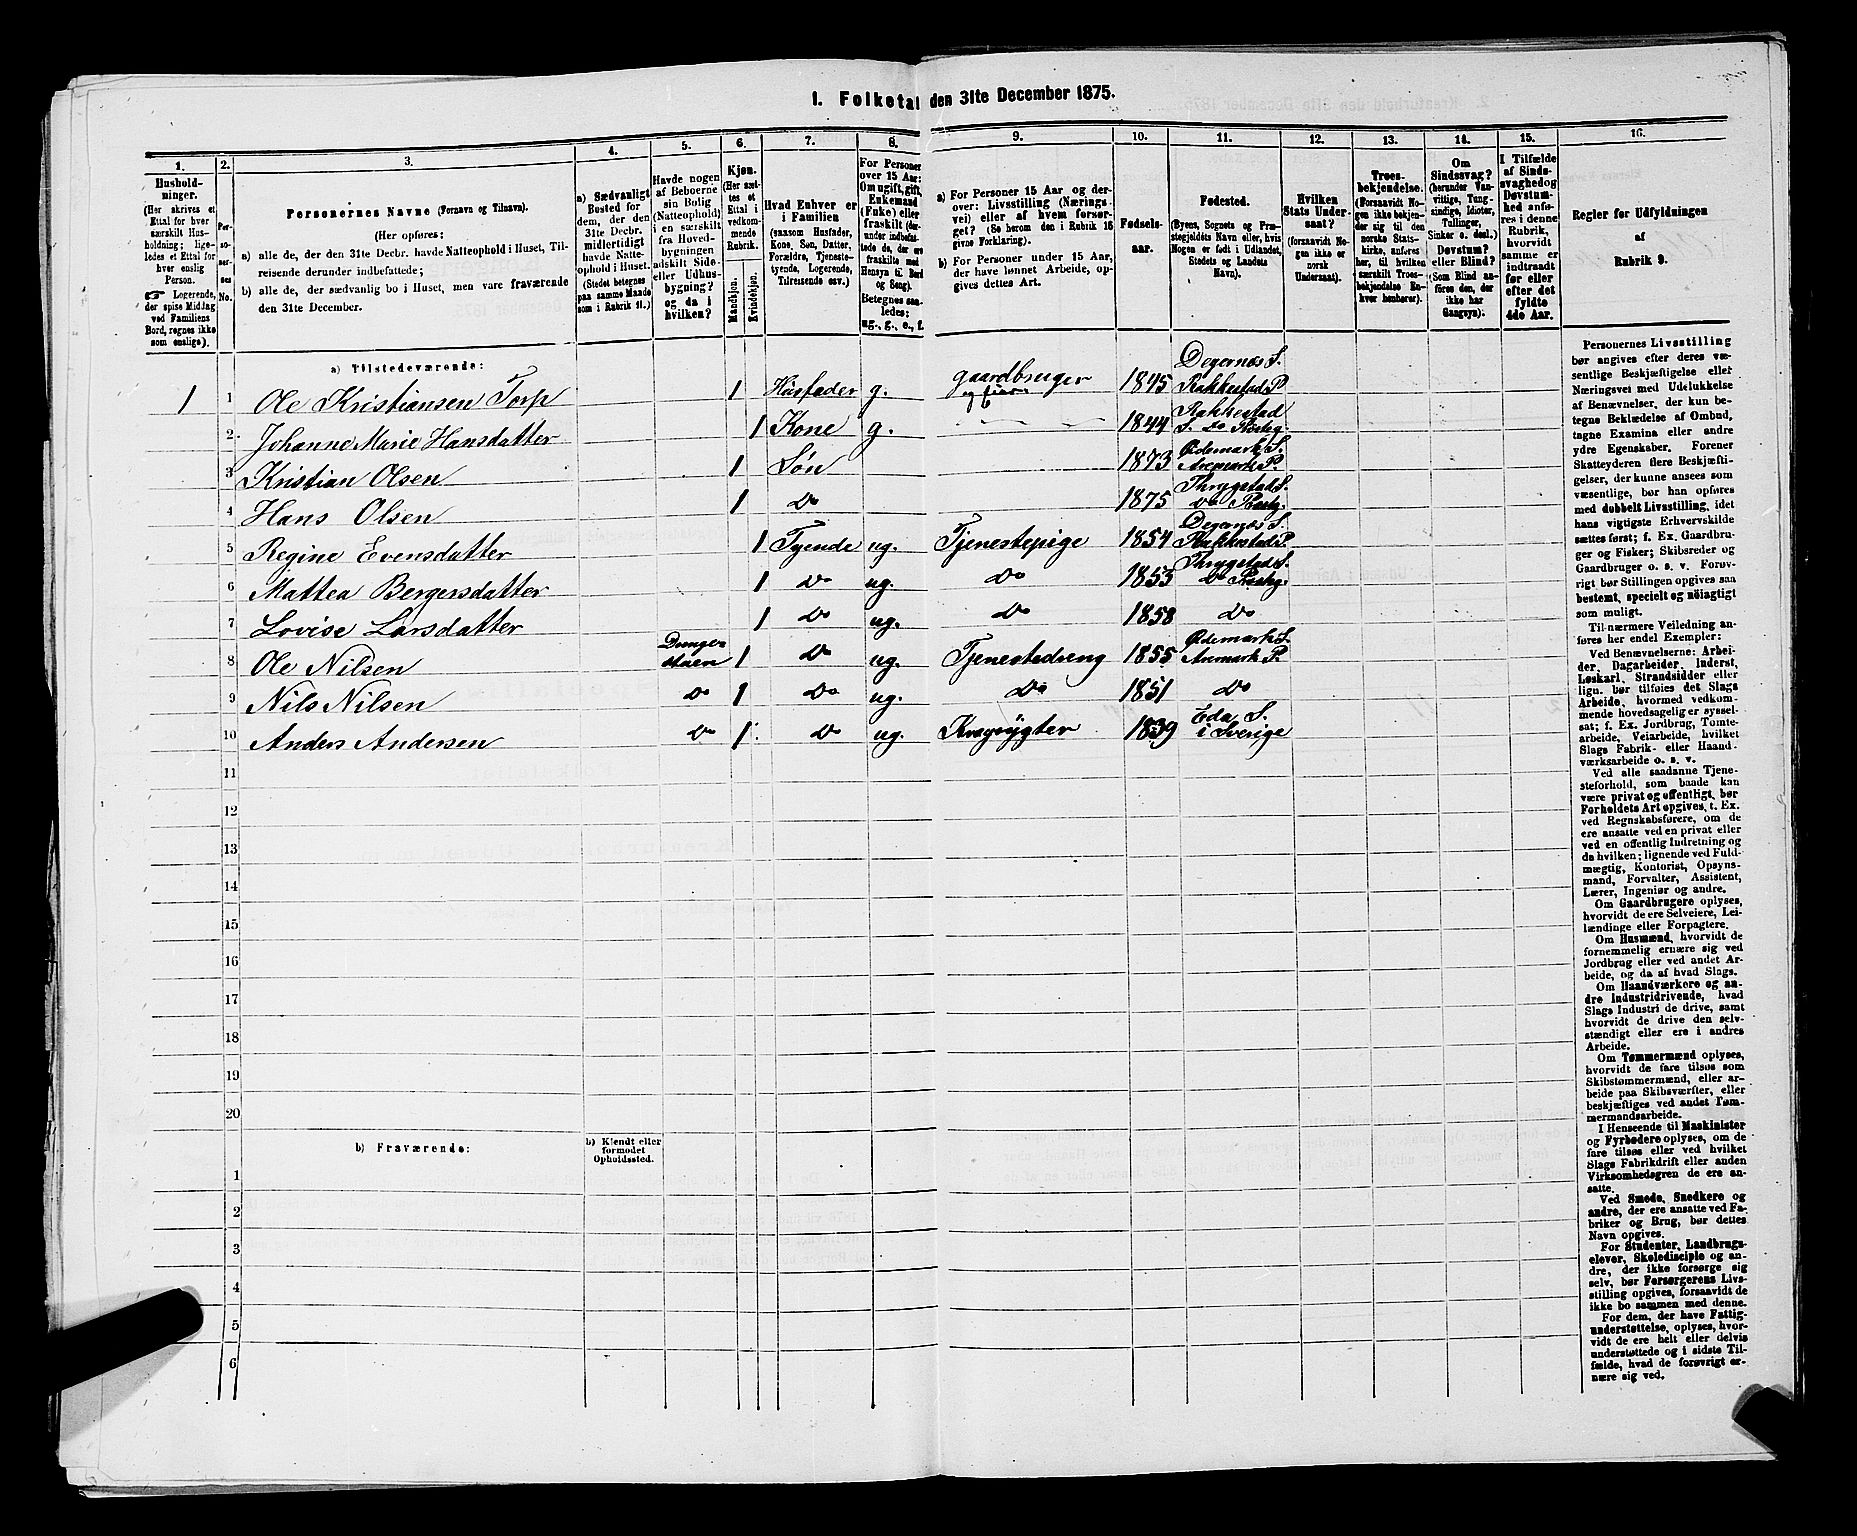 I. Folketal den 31te December 1875.
1.
Hushold-
ninger.
(Her skrives et
Ettal for hver
særskilt Hus-
holdning; lige-
ledes et Ettal for
hver enslig
Person.
☞ Logerende,
der spise Middag
ved Familiens
Bord, regnes ikke
som enslige).
2.
Per-
so-
ner-
nes
No.
3.
Personernes Navne (Fornavn og Tilnavn).
(Her opføres:
a) alle de, der den 31te Decbr. havde Natteophold i Huset, Til-
reisende derunder indbefattede;
b) alle de, der sædvanlig bo i Huset, men vare fraværende
den 31te December.
4.
a) Sædvanligt
Bosted for
dem, der den
31te Decbr.
midlertidigt
havde Natte-
ophold i Huset.
(Stedet betegnes
paa samme Maade
som i Rubrik 11.)
5.
Havde nogen
af Beboerne
sin Bolig
(Natteophold)
i en særskilt
fra Hoved-
bygningen
adskilt Side-
eller Udhus-
bygning?
og da i
hvilken?
6.
Kjøn.
(Her sæt-
tes et
Ettal i
vedkom-
mende
Rubrik.
Mandkjøn.
Kvindekjøn.
7.
Hvad Enhver er
i Familien
(saasom Husfader,
Kone, Søn, Datter,
Forældre, Tjeneste-
tyende, Logerende,
Tilreisende osv.)
8.
For Personer
over 15 Aar:
Om ugift, gift,
Enkemand
(Enke) eller
fraskilt (der-
under indbefat-
tede de, der ere
fraskilte med
Hensyn til Bord
og Seng).
Betegnes saa-
ledes:
ug., g., e., f.
9.
a) For Personer 15 Aar og der-
over: Livsstilling (Nærings-
vei) eller af hvem forsør-
get? (Se herom den i Rubrik 16
givne Forklaring).
b) For Personer under 15 Aar,
der have lønnet Arbeide, op-
gives dettes Art.
10.
Fødsels-
aar.
11.
Fødested.
(Byens, Sognets og Præ-
stegjeldets Navn eller, hvis
Nogen er født i Udlandet,
Stedets og Landets
Navn).
12.
Hvilken
Stats Under-
saat?
(forsaavidt No-
gen ikke er
norsk
Undersaat).
13.
Troes-
bekjendelse.
(Forsaavidt No-
gen ikke bekjen-
der sig til den
norske Stats-
kirke, anføres
her, til hvilken
særskilt Troes-
bekjendelse En-
hver henhører).
14.
Om
Sindssvag?
(herunder Van-
vittige, Tung-
sindige, Idioter,
Tullinger,
Sinker o. desl.).
Døvstum?
eller Blind?
(Som Blind an-
føres den, der
ikke har
Gangsyn).
15.
I Tilfælde
af Sinds-
svaghed og
Døvstum-
hed anfø-
res i denne
Rubrik,
hvorvidt
samme er
indtraadt
før eller
efter det
fyldte
4de Aar.
16.
Regler for Udfyldningen
af
Rubrik 9.
a) Tilstedeværende:
1 1 Ole Kristiansen Torp 1 Husfader g. gaardbruger og 1845 Degernæs S. Rakkestad P.
2. Johanne Marie Hansdatter 1 Kone g. 1844 Rakkestad S. Do Præstg.
3 Kristian Olsen 1 Søn 1873 Ødemark S. Aremark P.
4 Hans Olsen 1 Do 1875 Thrygstad S. Do Præstg.
5 Regine Evensdatter 1 Tyende ug. Tjenestepige 1854 Degernæs S. Rakkestad P.
6 Mattea Bergersdatter 1 Do ug. Do 1853 Thrygstad S. Do Præstg.
7 Lovise Larsdatter 1 Do ug. Do 1858 Do
8 Ole Nilsen 1 Do ug. Tjenestedreng 1855 Ødemark S. Aremark P.
9 Nils Nilsen Do 1 Do ug. Do 1851 Do
10 Anders Andersen Do 1 Do ug. Krøgrygter 1839 Eda S. i Sverige
11
12
13
14
15
16
17
18
19
20
b) Fraværende:
b) Kjendt eller
formodet
Opholdssted.
1
2
3
4
5
6
Personernes Livsstilling
bør angives efter deres væ-
sentlige Beskjæftigelse eller
Næringsvei med Udelukkelse
af Benævnelser, der kun be-
tegne Beklædelse af Ombud,
tagne Examina eller andre
ydre Egenskaber. Forener
Skatteyderen flere Beskjæfti-
gelser, der kunne ansees som
væsentlige, bør han opføres
med dobbelt Livsstilling, idet
hans vigtigste Erhvervskilde
sættes først; f. Ex. Gaardbru-
ger og Fisker; Skibsreder og
Gaardbruger o. s. v. Forøv-
rigt bør Stillingen opgives saa
bestemt, specielt og nøiagtigt
som muligt.
Til nærmere Veiledning an-
føres her endel Exempler:
Ved Benævnelserne: Arbei-
der, Dagarbeider, Inderst,
Løskarl, Strandsidder eller
lign. bør tilføies det Slags
Arbeide, hvormed vedkom-
mende hovedsagelig er syssel-
sat; f. Ex. Jordbrug, Tomte-
arbeide, Veiarbeide, hvilket
Slags Fabrik- eller Haand-
værksarbeide o. s. v.
Ved alle saadanne Tjene-
steforhold, som baade kan
være privat og offentligt, bør
Forholdets Art opgives, t. Ex.
ved Regnskabsførere, om de
ere ansatte ved en privat eller
ved en offentlig Indretning og
da hvilken; lignende ved Fuld-
mægtig, Kontorist, Opsyns-
mand, Forvalter, Assistent,
Lærer, Ingeniør og andre.
Om Gaardbrugere oplyses,
hvorvidt de ere Selveiere, Lei-
lændinge eller Forpagtere.
Om Husmænd, hvorvidt de
fornemmelig ernære sig ved
Jordbrug eller ved andet Ar-
beide, og da af hvad Slags.
Om Haandværkere og an-
dre Industridrivende, hvad
Slags Industri de drive, samt
hvorvidt de drive den selv-
stændigt eller ere i andres
Arbeide.
Om Tømmermænd oplyses,
hvorvidt de fare tilsøs som
Skibstømmermænd, eller ar-
beide paa Skibsværfter, eller
beskjæftiges ved andet Tøm-
mermandsarbeide.
I Henseende til Maskinister
og Fyrbødere oplyses, om de
fare tilsøs eller ved hvilket
Slags Fabrikdrift eller anden
Virksomhedsgren de ere an-
satte.
Ved Smede, Snedkere og
andre, der ere ansatte ved Fa-
briker og Brug, bør dettes
Navn opgives.
For Studenter, Landbrugs-
elever, Skoledisciple og an-
dre, der ikke forsørge sig
selv, bør Forsørgerens Livs-
stilling opgives, forsaavidt de
ikke bo sammen med denne.
For dem, der have Fattig-
understøttelse, oplyses, hvor-
vidt de ere helt eller delvis
understøttede og i sidste Til-
fælde, hvad de forøvrigt er-
nære sig ved.